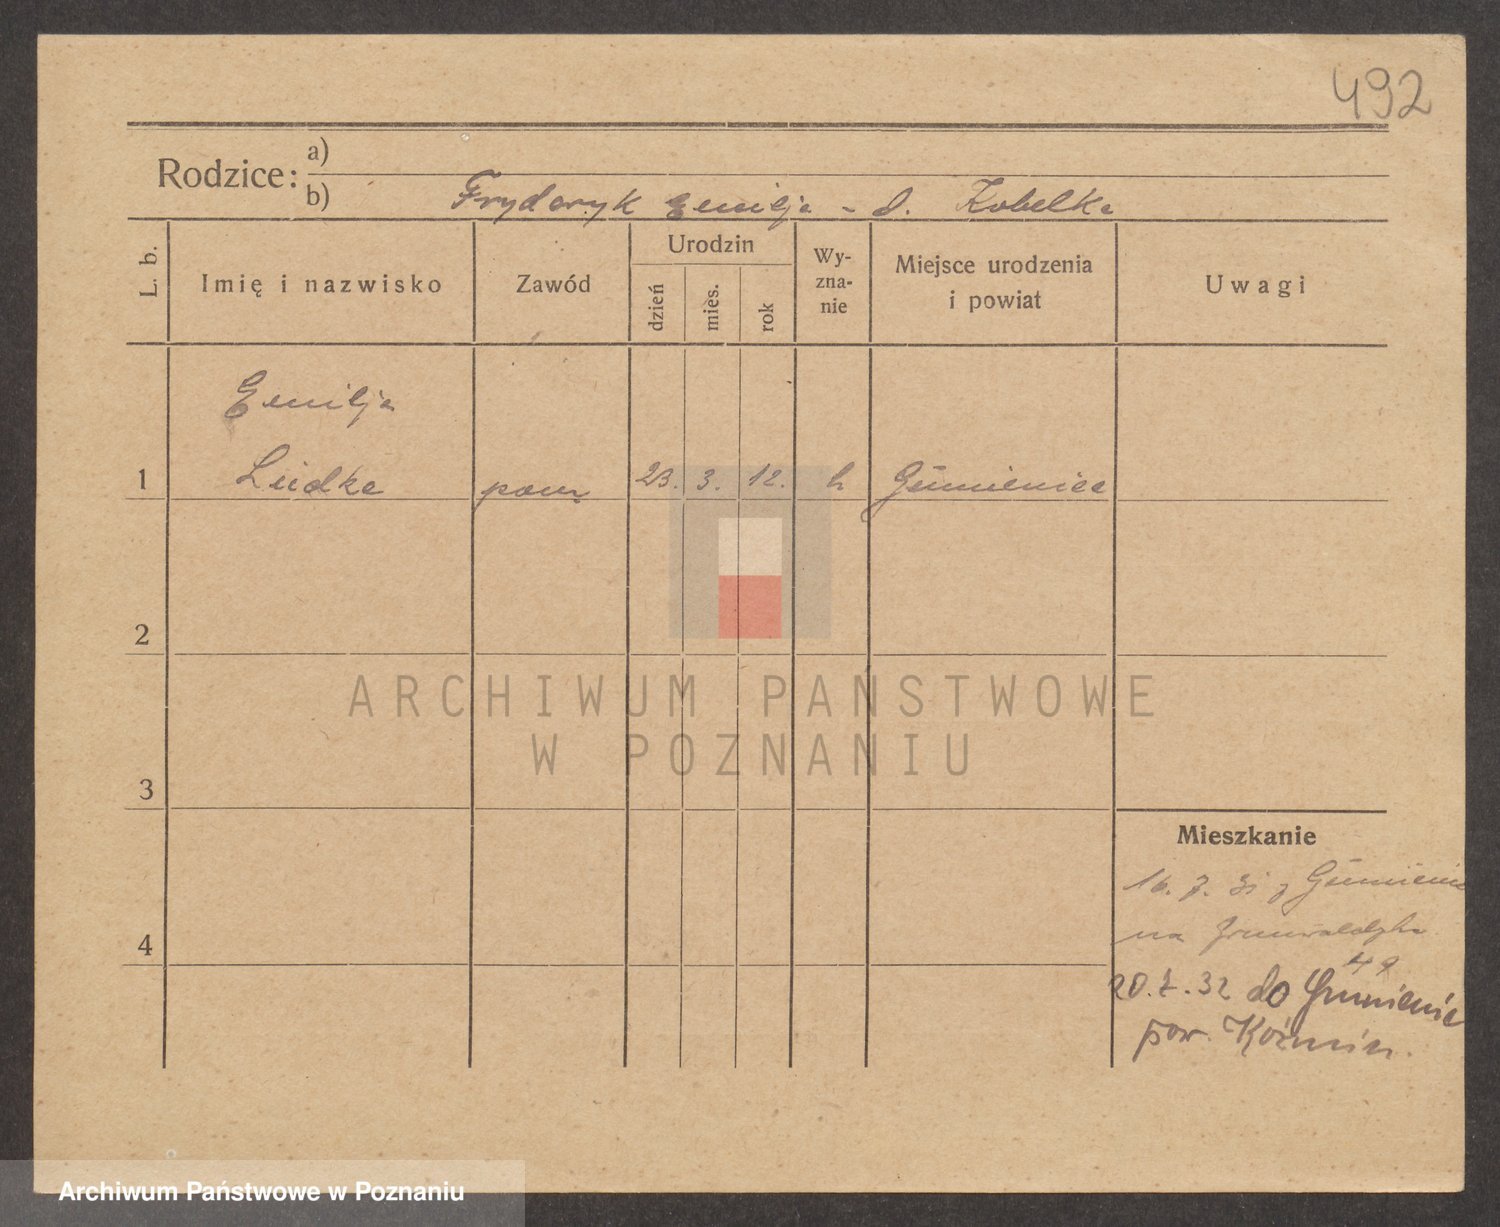 492
Rodzice:
a)
b) Fryderyk Emilja - d. Kobelka
L. b.
Imię i nazwisko
Zawód
Urodzin
dzień
mies.
rok
Wy-
zna-
nie
Miejsce urodzenia
i powiat
Uwagi
Emilja
1 Ludka 23. 3. 12. Gumienice
2
3
4
ARCHIWUM PAŃSTWOWE
W POZNANIU
Mieszkanie
16. 7. 31 z Gumienic
na Grunwaldzka
49
20.7.32 do Gumienic
pow. Koźmin.
Archiwum Państwowe w Poznaniu